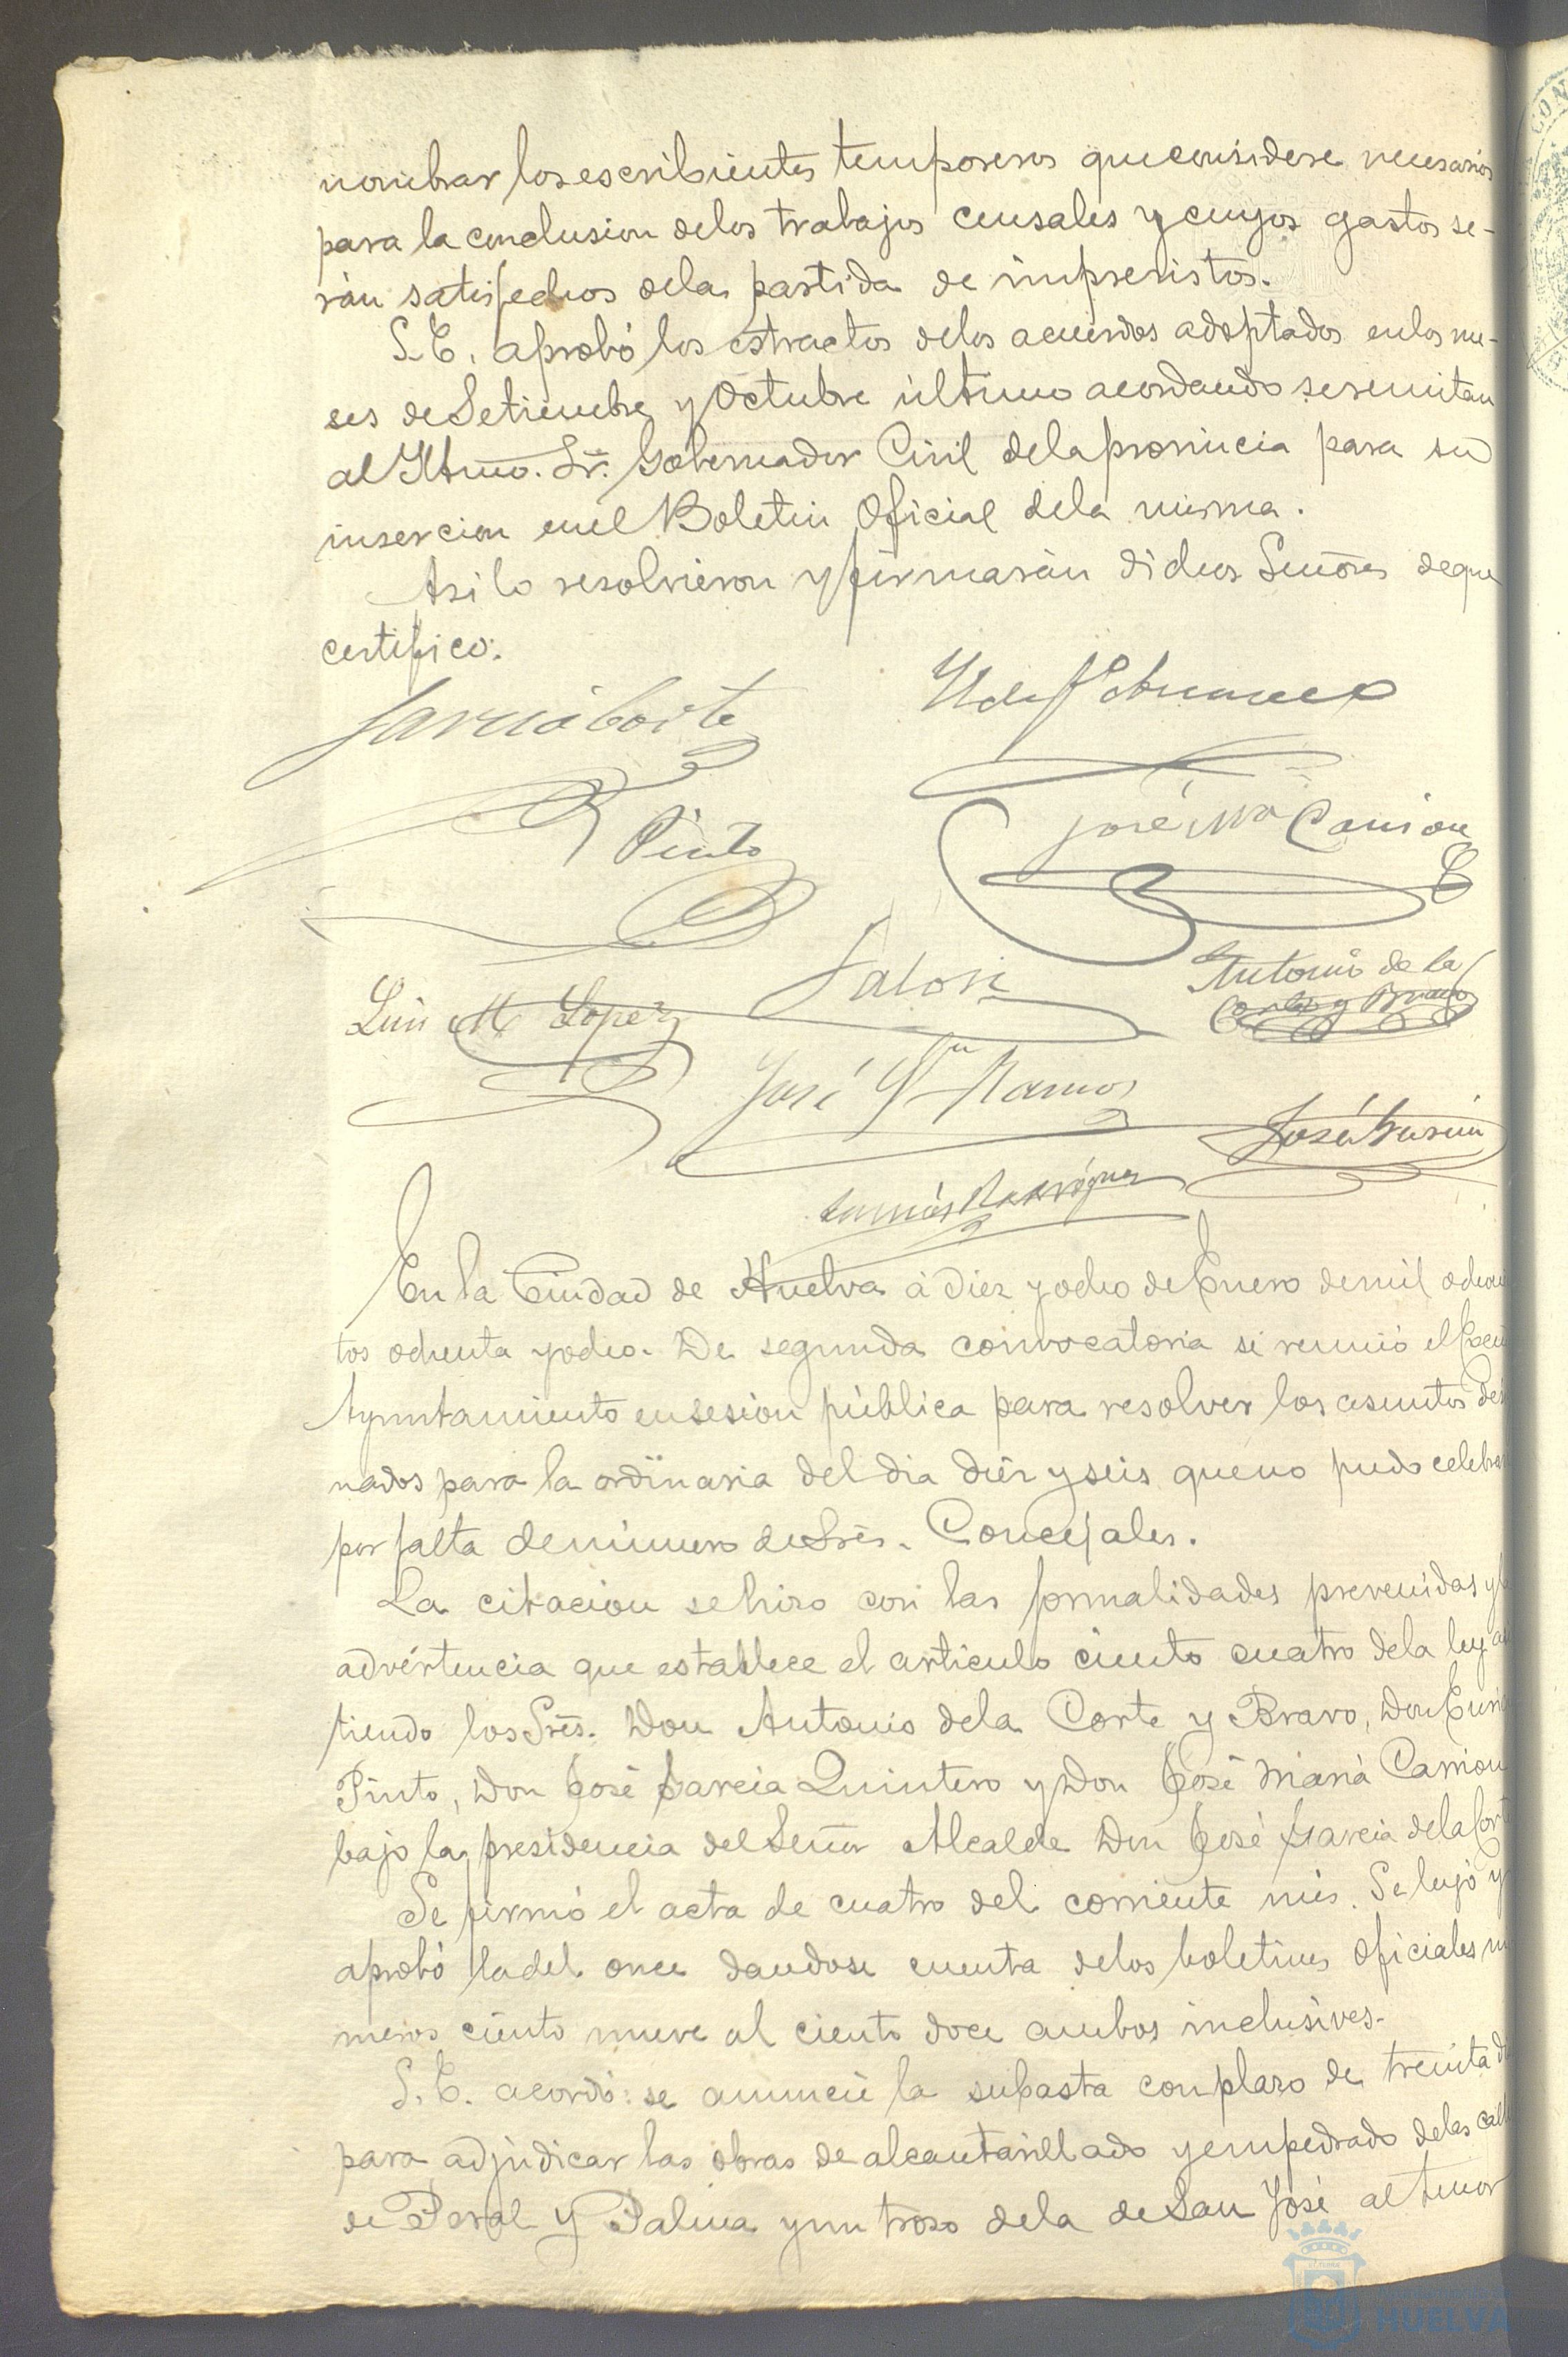 nombrar los escribientes temporeros que considere necesarios
para la conclusion delos trabajos censales y cuyos gastos se-
rán satisfechos dela partida de imprevistos.
S. E. aprobó los estractos delos acuerdos adoptados enlos me-
ses de Setiembre y Octubre último acordando se remitan
al Iltmo. Sr. Gobernador Civil dela provincia para su
insercion enel Boletin Oficial dela misma.
Asi lo resolvieron y firmarán dichos Señores deque
certifico:
Garcia Corte
Pinto
José Mª Carrion
Luis M. Lopez
Antonio de la
Corte y Bravo
José Ramos
José Garcia
Tomás Rodriguez
En la Ciudad de Huelva á diez y ocho de Enero de mil ochocien
tos ochenta y ocho. De segunda convocatoria se reunió el
Ayuntamiento en sesion pública para resolver los asuntos
nados para la ordinaria del dia diez y seis que no pudo celebrar
por falta de número de Sres. Concejales.
La citacion se hizo con las formalidades prevenidas y
advertencia que establece el artículo ciento cuatro dela ley
tiendo los Sres. Don Antonio dela Corte y Bravo, Don
Pinto, Don José Garcia Quintero y Don José Maria Carrion
bajo la presidencia del Señor Alcalde Don José Garcia dela Cort
Se firmó el acta de cuatro del corriente mes. Se leyó y
aprobó la del once dandose cuenta delos boletines oficiales nú
meros ciento nueve al ciento doce ambos inclusives.
S. E. acordó: se anuncie la subasta con plazo de treinta
para adjudicar las obras de alcantarillado y empedrado delas call
de Peral y Palma y un trozo dela de San José al tenor
HUELVA